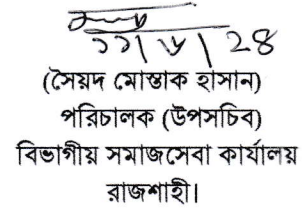 ১১|৬|২৪
(সৈয়দ মোস্তাক হাসান)
পরিচালক (উপসচিব)
বিভাগীয় সমাজসেবা কার্যালয়
রাজশাহী।